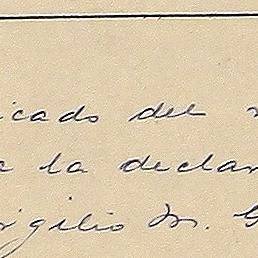 icado del
a la declar
rgilio M. G